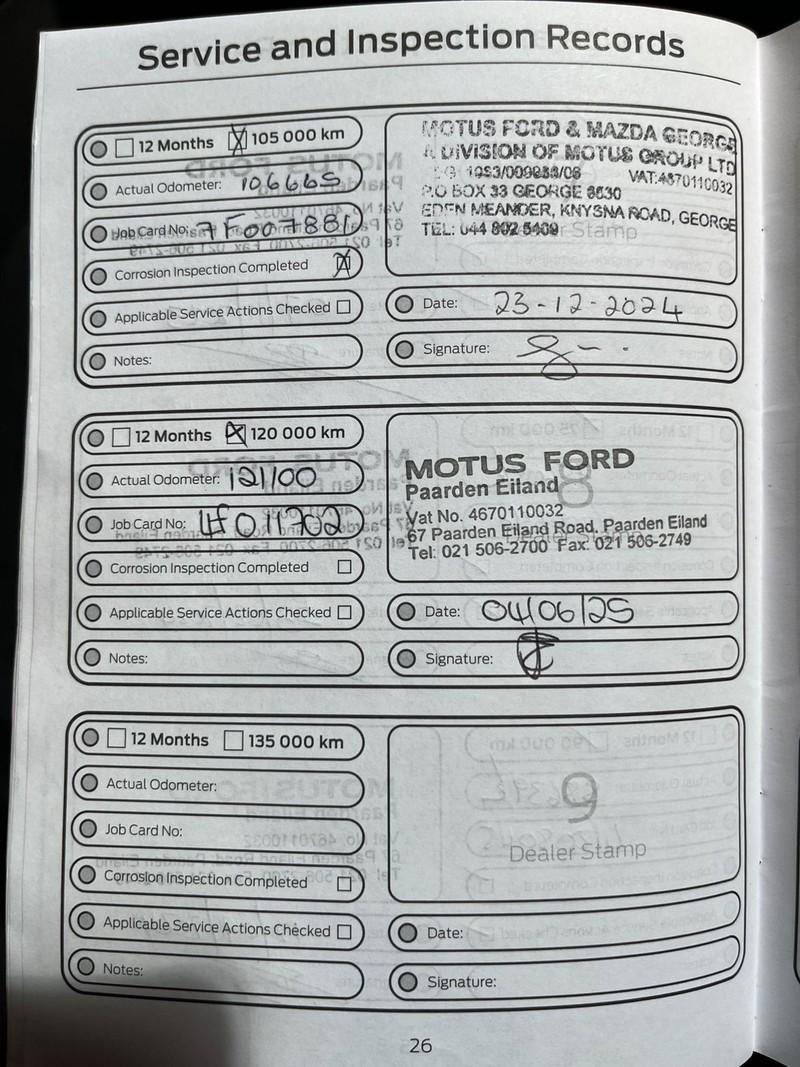 Service and Inspection Records
12 Months 105 000 km
Actual Odometer: 106665
Job Card No: 7F007881
Corrosion Inspection Completed
Applicable Service Actions Checked
Notes:
MOTUS FORD & MAZDA GEORGE
A DIVISION OF MOTUS GROUP LTD
VAT:4670110032
P.O BOX 33 GEORGE 6530
EDEN MEANDER, KNYSNA ROAD, GEORGE
TEL: 044 802 5409
Stamp
Date: 23-12-2024
Signature:
12 Months 120 000 km
Actual Odometer: 121100
Job Card No: 4F011702
Corrosion Inspection Completed
Applicable Service Actions Checked
Notes:
8
MOTUS FORD
Paarden Eiland
Vat No. 4670110032
67 Paarden Eiland Road, Paarden Eiland
Tel: 021 506-2700 Fax: 021 506-2749
Date: 04/06/25
Signature:
12 Months 135 000 km
Actual Odometer:
Job Card No:
Corrosion Inspection Completed
Applicable Service Actions Checked
Notes:
9
Dealer Stamp
Date:
Signature:
26